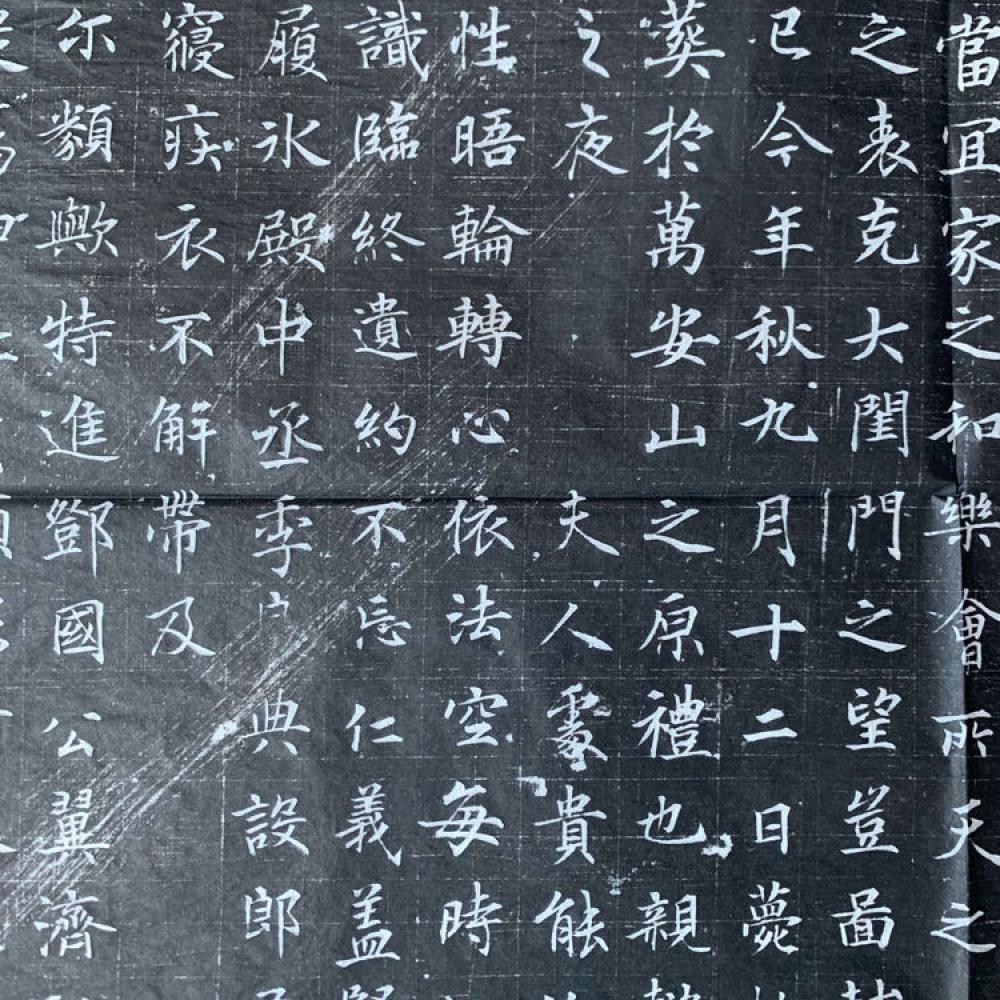 當宜家之和樂會所天之
之表克大閨門之望豈啚
已今年秋九月十二日薨
葬於萬安山之原禮也親
之夜 夫人處貴能
性晤輪轉心依法空每時
識臨終遺約不忘仁義盖
履氷殿中丞季 典設郎
寢疾衣不解帶及
尔類歟特進鄧國公翼濟